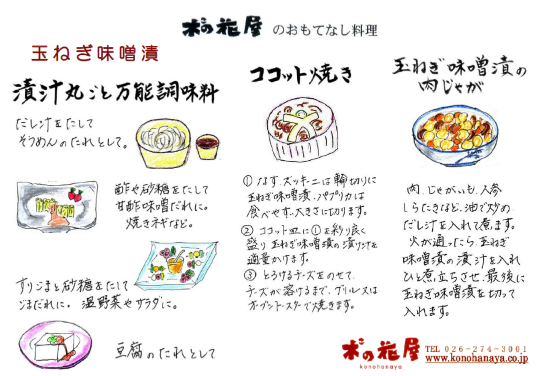 木の花屋 のおもてなし料理
玉ねぎ味噌漬
漬汁丸ごと万能調味料
だし汁をたして
そうめんのたれとして。
酢や砂糖をたして
甘酢味噌だれに。
焼きネギなど。
すりごまと砂糖をたして
ごまだれに。温野菜やサラダに。
豆腐のたれとして
ココット焼き
① なす、ズッキーニは輪切りに
玉ねぎ味噌漬、パプリカは
食べやすい大きさに切ります。
② ココット皿に①を彩り良く
盛り玉ねぎ味噌漬の漬け汁を
適量かけます。
③ とろけるチーズをのせて、
チーズが溶けるまで、グリル又は
オーブントースターで焼きます。
玉ねぎ味噌漬の
肉じゃが
肉、じゃがいも、人参
しらたきなど、油で炒め
だし汁を入れて煮ます。
火が通ったら、玉ねぎ
味噌漬の漬汁を入れ
ひと煮立ちさせ、最後に
玉ねぎ味噌漬を切って
入れます。
木の花屋
konohanaya
TEL 026-274-3001
www.konohanaya.co.jp